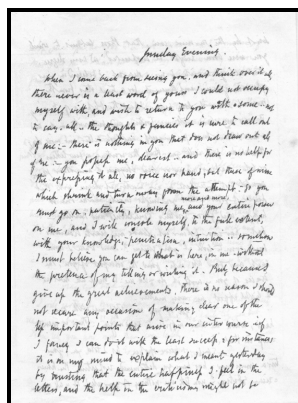 Sunday Evening.
When I come back from seeing you, and think over it all,
there never is a least word of yours I could not occupy
myself with, and wish to return to you with some .. not
to say, all .. the thoughts & fancies it is sure to call out
of me :- there is nothing in you that does not draw out all
of me :- you possess me, dearest .. and there is no help for
the expressing it all, no voice nor hand, but these of mine
which shrink and turn away from the attempt. So you
must go on, patiently, knowing me, more and more, and your entire power
on me, and I will console myself, to the full extent,
with your knowledge, penetration, intuition .. somehow
I must believe you can get to what is here, in me, without
the pretence of my telling or writing it. But, because I
give up the great achievements, there is no reason I should
not secure any occasion of making clear one of the
less important points that arise in our intercourse .. if
I fancy I can do it with the least success : for instance
it is on my mind to explain what I meant yesterday
by trusting that the entire happiness I feel in the
letters, and the help in the criticising might not be